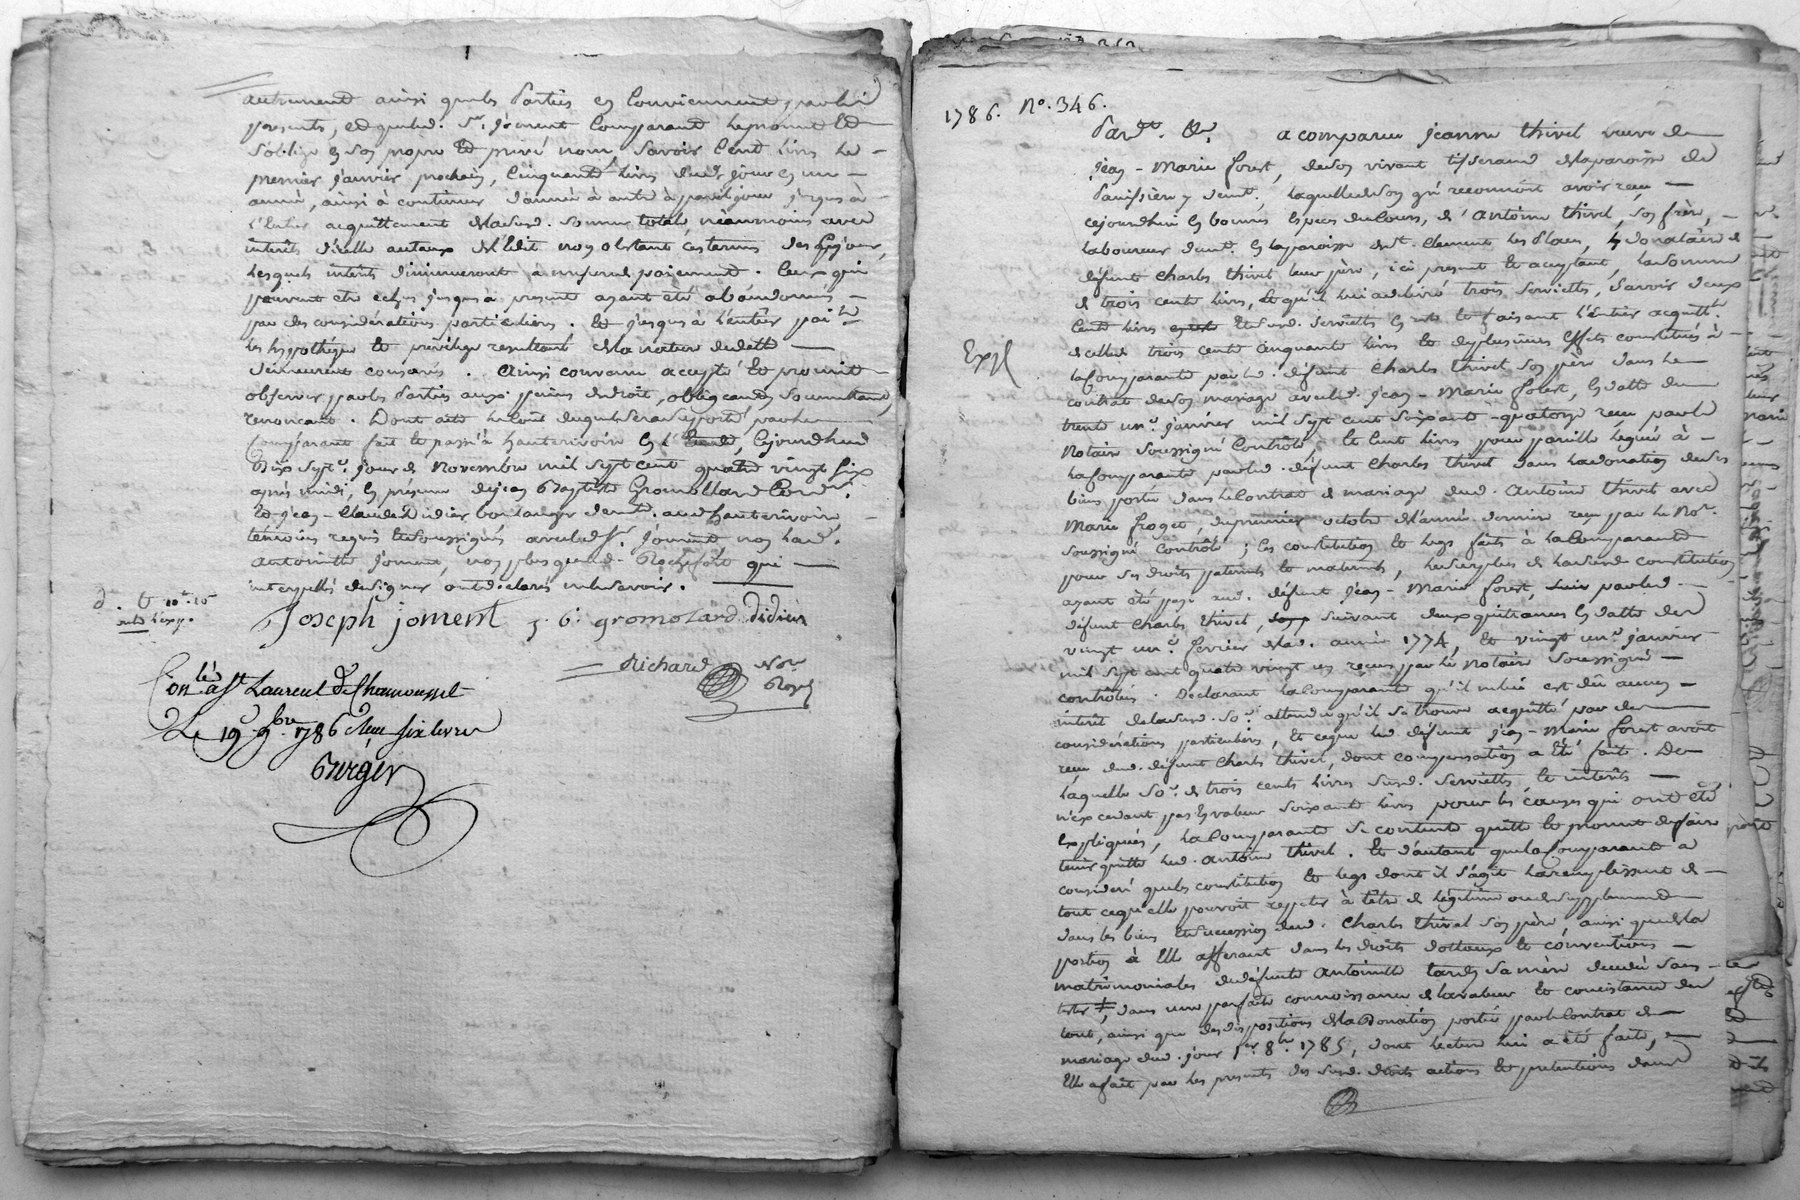 autrement ainsi que les Parties en Conviennent par les
presents, et que led. Sr. joment Comparant promet Et
s'oblige en son propre Et privé nom savoir Cent livres le
premier janvier prochain, Cinquante livres dud. jour en un
année, ainsi à continuer d'année à autre à pareil jour jusques à
l'Entier acquittement de lasusd. somme total, néanmoins avec
interêts d'icelle au taux de l'Edit non obstant les termes
lesquels interêts diminueront à mesure de paiement. Ceux qui
peuvent etre echus jusques à present ayant été abandonnés
par des considérations particulieres. Et jusques à l'entier pai.t
les hypothèque Et privilége resultant de la nature de dette
demeurent conservés. Ainsi convenu accepté Et promit
observer par les Parties aux peines de droit, obligeant, soumettant,
renoncant. Dont acte
Comparant fait Et passé à hauterivoire En l'Etude, Cejourd'hui
Dix sept.e jour de Novembre mil sept cent quatre vingt six
après midi, En présence de jean Baptiste Gromollard
Et jean-Claude Didier boulanger demt. aud. hauterivoire,
temoins requis Et soussignés avec led. Sr. joment non lad.
Antoinette joment, non plus que led. Rochefort qui
interpellés de signer ont declarés ne le savoir.
Joseph joment j. b. gromolard didier
Richard No.re Royal
Con.lé a St Laurent de Chamousset
Le 19 9bre 1786 Reçu six livres
Burger
1786. No. 346.
Pard.t &. a comparu jeanne thivel veuve de
jean-Marie forest, de son vivant tisserand de la paroisse de
Panissiere y demt., laquelle de son gré reconnoit avoir reçu
cejourd'hui En bonnes Especes du Cours, d'Antoine thivel, son frère,
laboureur demt. En la paroisse de St. Clement les Places, donataire de
défunt Charles thivel leur père, ici present Et acceptant, la somme
de trois cents livres, Et qu'il lui a delivré trois serviettes, savoir deux
Cent livres Et lesusd. serviettes En reste Et faisant l'entier acquitt.t
Exp.
de celle de trois cents cinquante livres Et de plusieurs Effets constitués à
la Comparante par led. défunt Charles thivel son père dans le
contrat de son mariage avec led. jean-Marie forest, En datte du
trente un.e janvier mil sept cent soixante-quatorze reçu par le
Notaire soussigné Contrôlé, Et Cent livres pour pareille léguée à
la Comparante par led. défunt Charles thivel dans la donation de ses
biens portée dans le Contrat de mariage dud. Antoine thivel avec
Marie froget, du premier octobre de l'année derniere reçu par le No.re
soussigné Contrôlé; les constitution Et legs faits à la Comparante
pour ses droits paternels Et maternels, le surplus de lasusd. constitution
ayant été payé aud. défunt jean-Marie forest, par led.
défunt Charles thivel, suivant deux quittances En datte des
vingt un.e fevrier de lad. année 1774, Et vingt un.e janvier
mil sept cent quatre vingt un reçues par le Notaire soussigné
contrôlés. Déclarant la Comparante qu'il ne lui est dû aucun
interêt de lasusd. so.e attendu qu'il se trouve acquitté par des
considérations particulieres, Et ce que led. défunt jean-Marie forest avoit
reçu dud. défunt Charles thivel, dont compensation a Eté faite. De
laquelle so.e de trois cents livres susd. serviettes Et interêts
n'excedant pas En valeur soixante livres pour les causes qui ont été
Expliquées, la Comparante se contente quitte Et promet de faire
tenir quitte led. Antoine thivel. Et d'autant que la Comparante a
consideré que les constitution Et legs dont il s'agit la remplissent de
tout ce qu'elle pouvoit repeter à titre de légitime ou de supplement
dans les biens Et succession dud. Charles thivel son père, ainsi que de la
portion à Elle afferant dans les droits dottaux Et conventions
matrimoniales de défunte Antoinette tardy sa mère decedée sans
tester, dans une parfaite connoissance de la valeur Et consistance du
tout, ainsi que des dispositions de la Donation portée par le Contrat de
mariage dud. jour 1er. 8bre. 1785, dont lecture lui a été faite,
Elle a fait par les presents des susd. droits actions Et pretentions dans